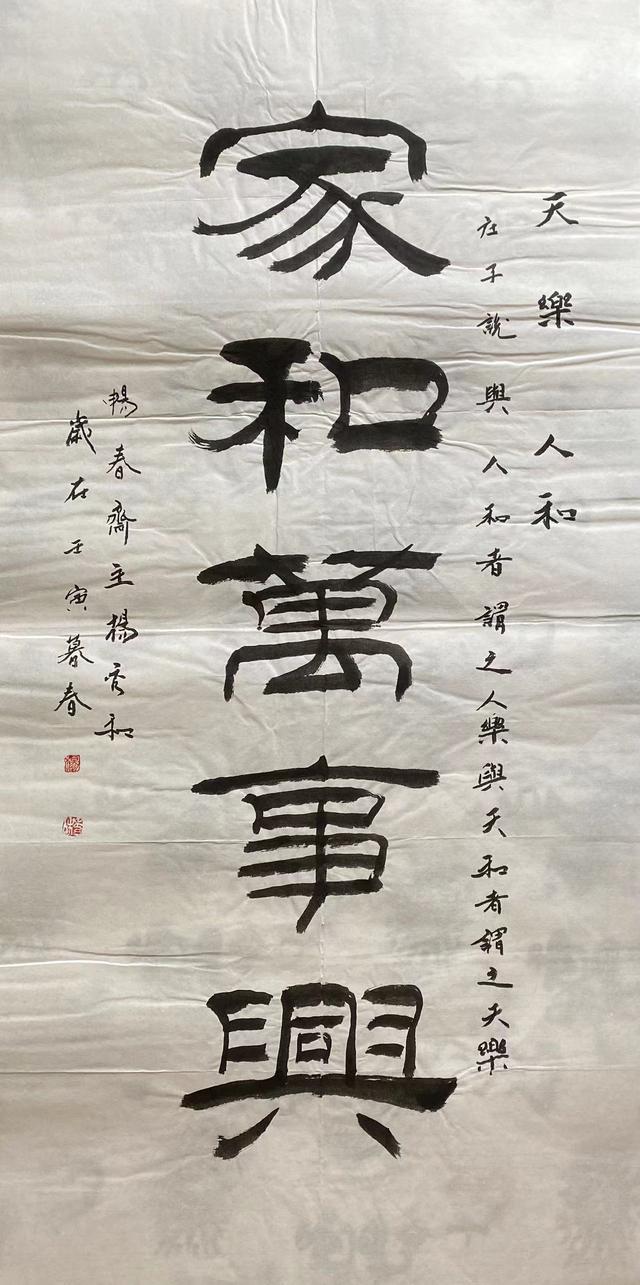 天樂人和
庄子說與人和者謂之人樂與天和者謂之天樂
家和萬事興
暢春齋主楊官和
歲在壬寅暮春